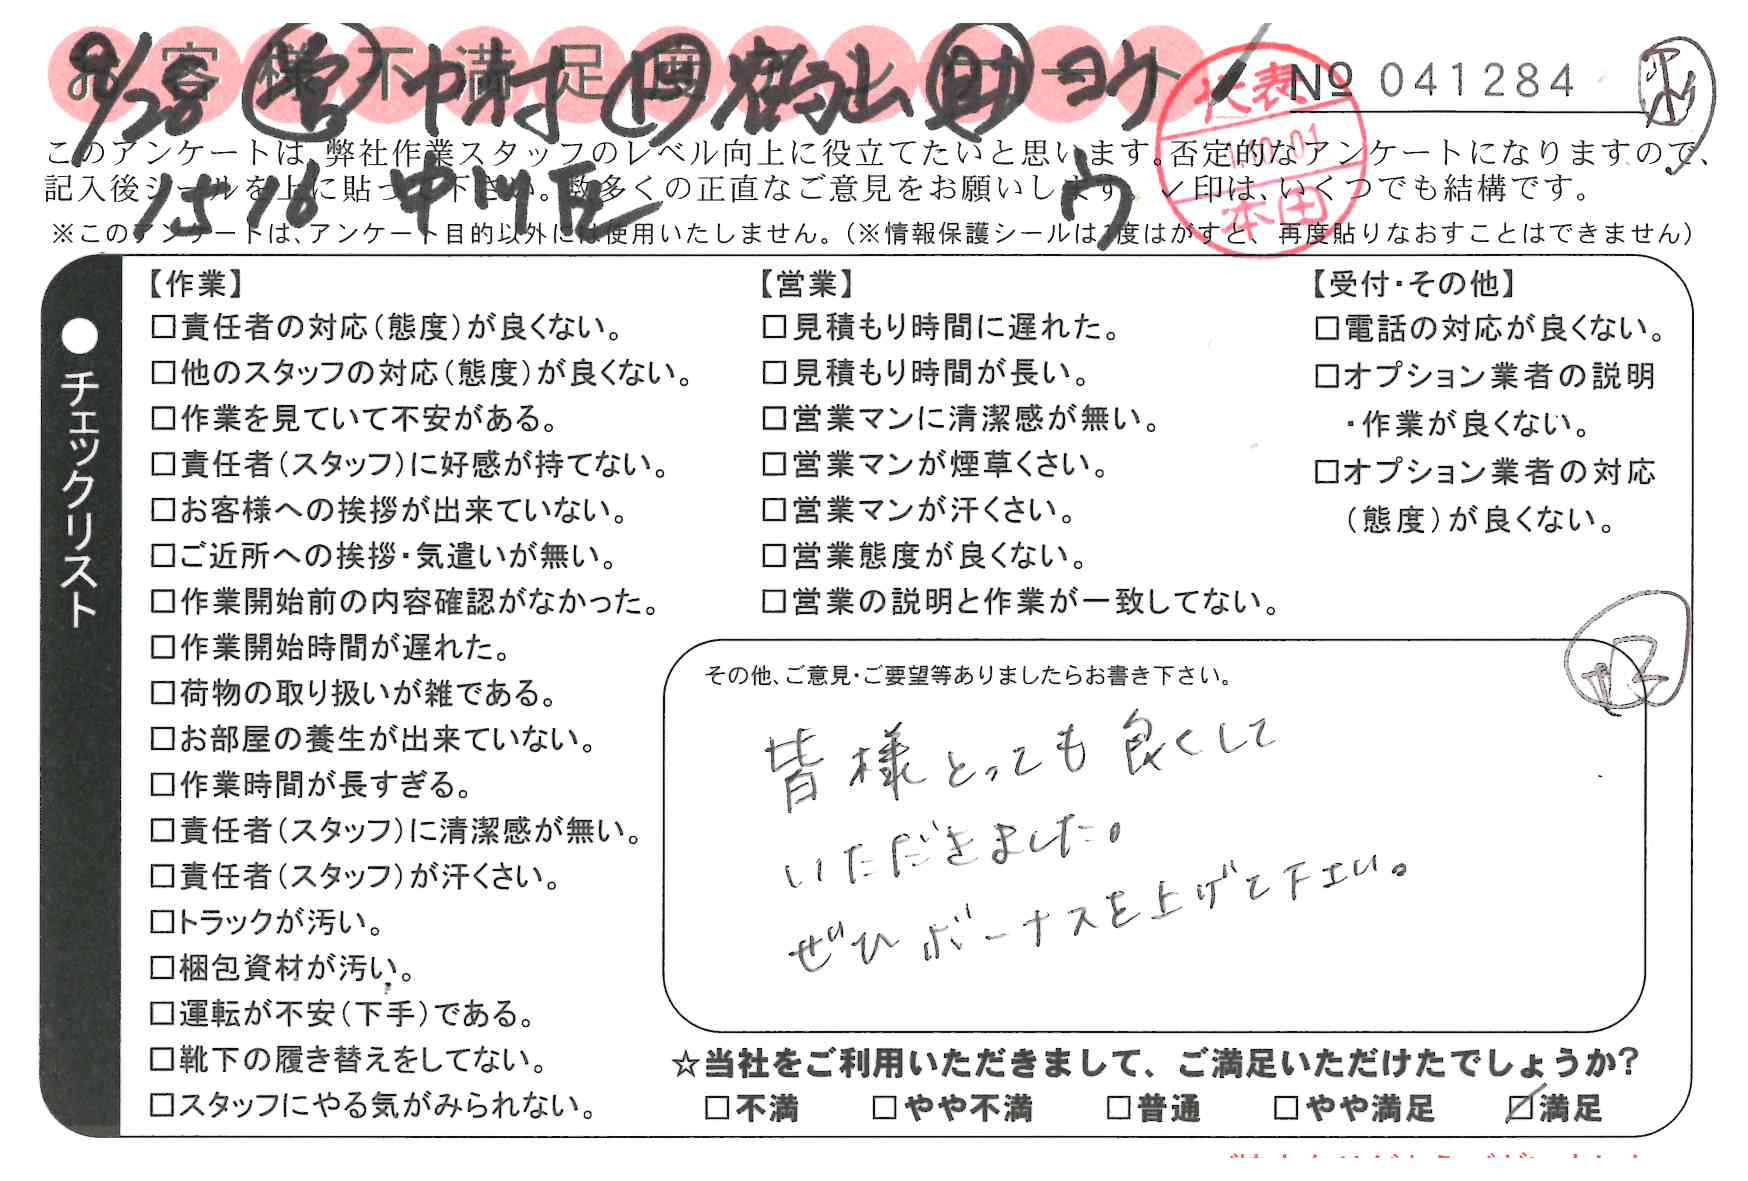 お客様不満足度アンケート
9/28 営 中村 下 嶺山 助 ヨウ
№ 041284
代表
1.10.01
本田
このアンケートは、弊社作業スタッフのレベル向上に役立てたいと思います。否定的なアンケートになりますので、
記入後シールを上に貼って下さい。数多くの正直なご意見をお願いします。✓印は、いくつでも結構です。
1516 中川
ウ
※このアンケートは、アンケート目的以外には使用いたしません。(※情報保護シールは1度はがすと、再度貼りなおすことはできません)
●チェックリスト
【作業】
□責任者の対応(態度)が良くない。
□他のスタッフの対応(態度)が良くない。
□作業を見ていて不安がある。
□責任者(スタッフ)に好感が持てない。
□お客様への挨拶が出来ていない。
□ご近所への挨拶・気遣いが無い。
□作業開始前の内容確認がなかった。
□作業開始時間が遅れた。
□荷物の取り扱いが雑である。
□お部屋の養生が出来ていない。
□作業時間が長すぎる。
□責任者(スタッフ)に清潔感が無い。
□責任者(スタッフ)が汗くさい。
□トラックが汚い。
□梱包資材が汚い。
□運転が不安(下手)である。
□靴下の履き替えをしてない。
□スタッフにやる気がみられない。
【営業】
□見積もり時間に遅れた。
□見積もり時間が長い。
□営業マンに清潔感が無い。
□営業マンが煙草くさい。
□営業マンが汗くさい。
□営業態度が良くない。
□営業の説明と作業が一致してない。
【受付・その他】
□電話の対応が良くない。
□オプション業者の説明
・作業が良くない。
□オプション業者の対応
(態度)が良くない。
その他、ご意見・ご要望等ありましたらお書き下さい。
皆様とっても良くして
いただきました。
ぜひボーナスを上げて下さい。
☆当社をご利用いただきまして、ご満足いただけたでしょうか?
□不満 □やや不満 □普通 □やや満足 ☑満足